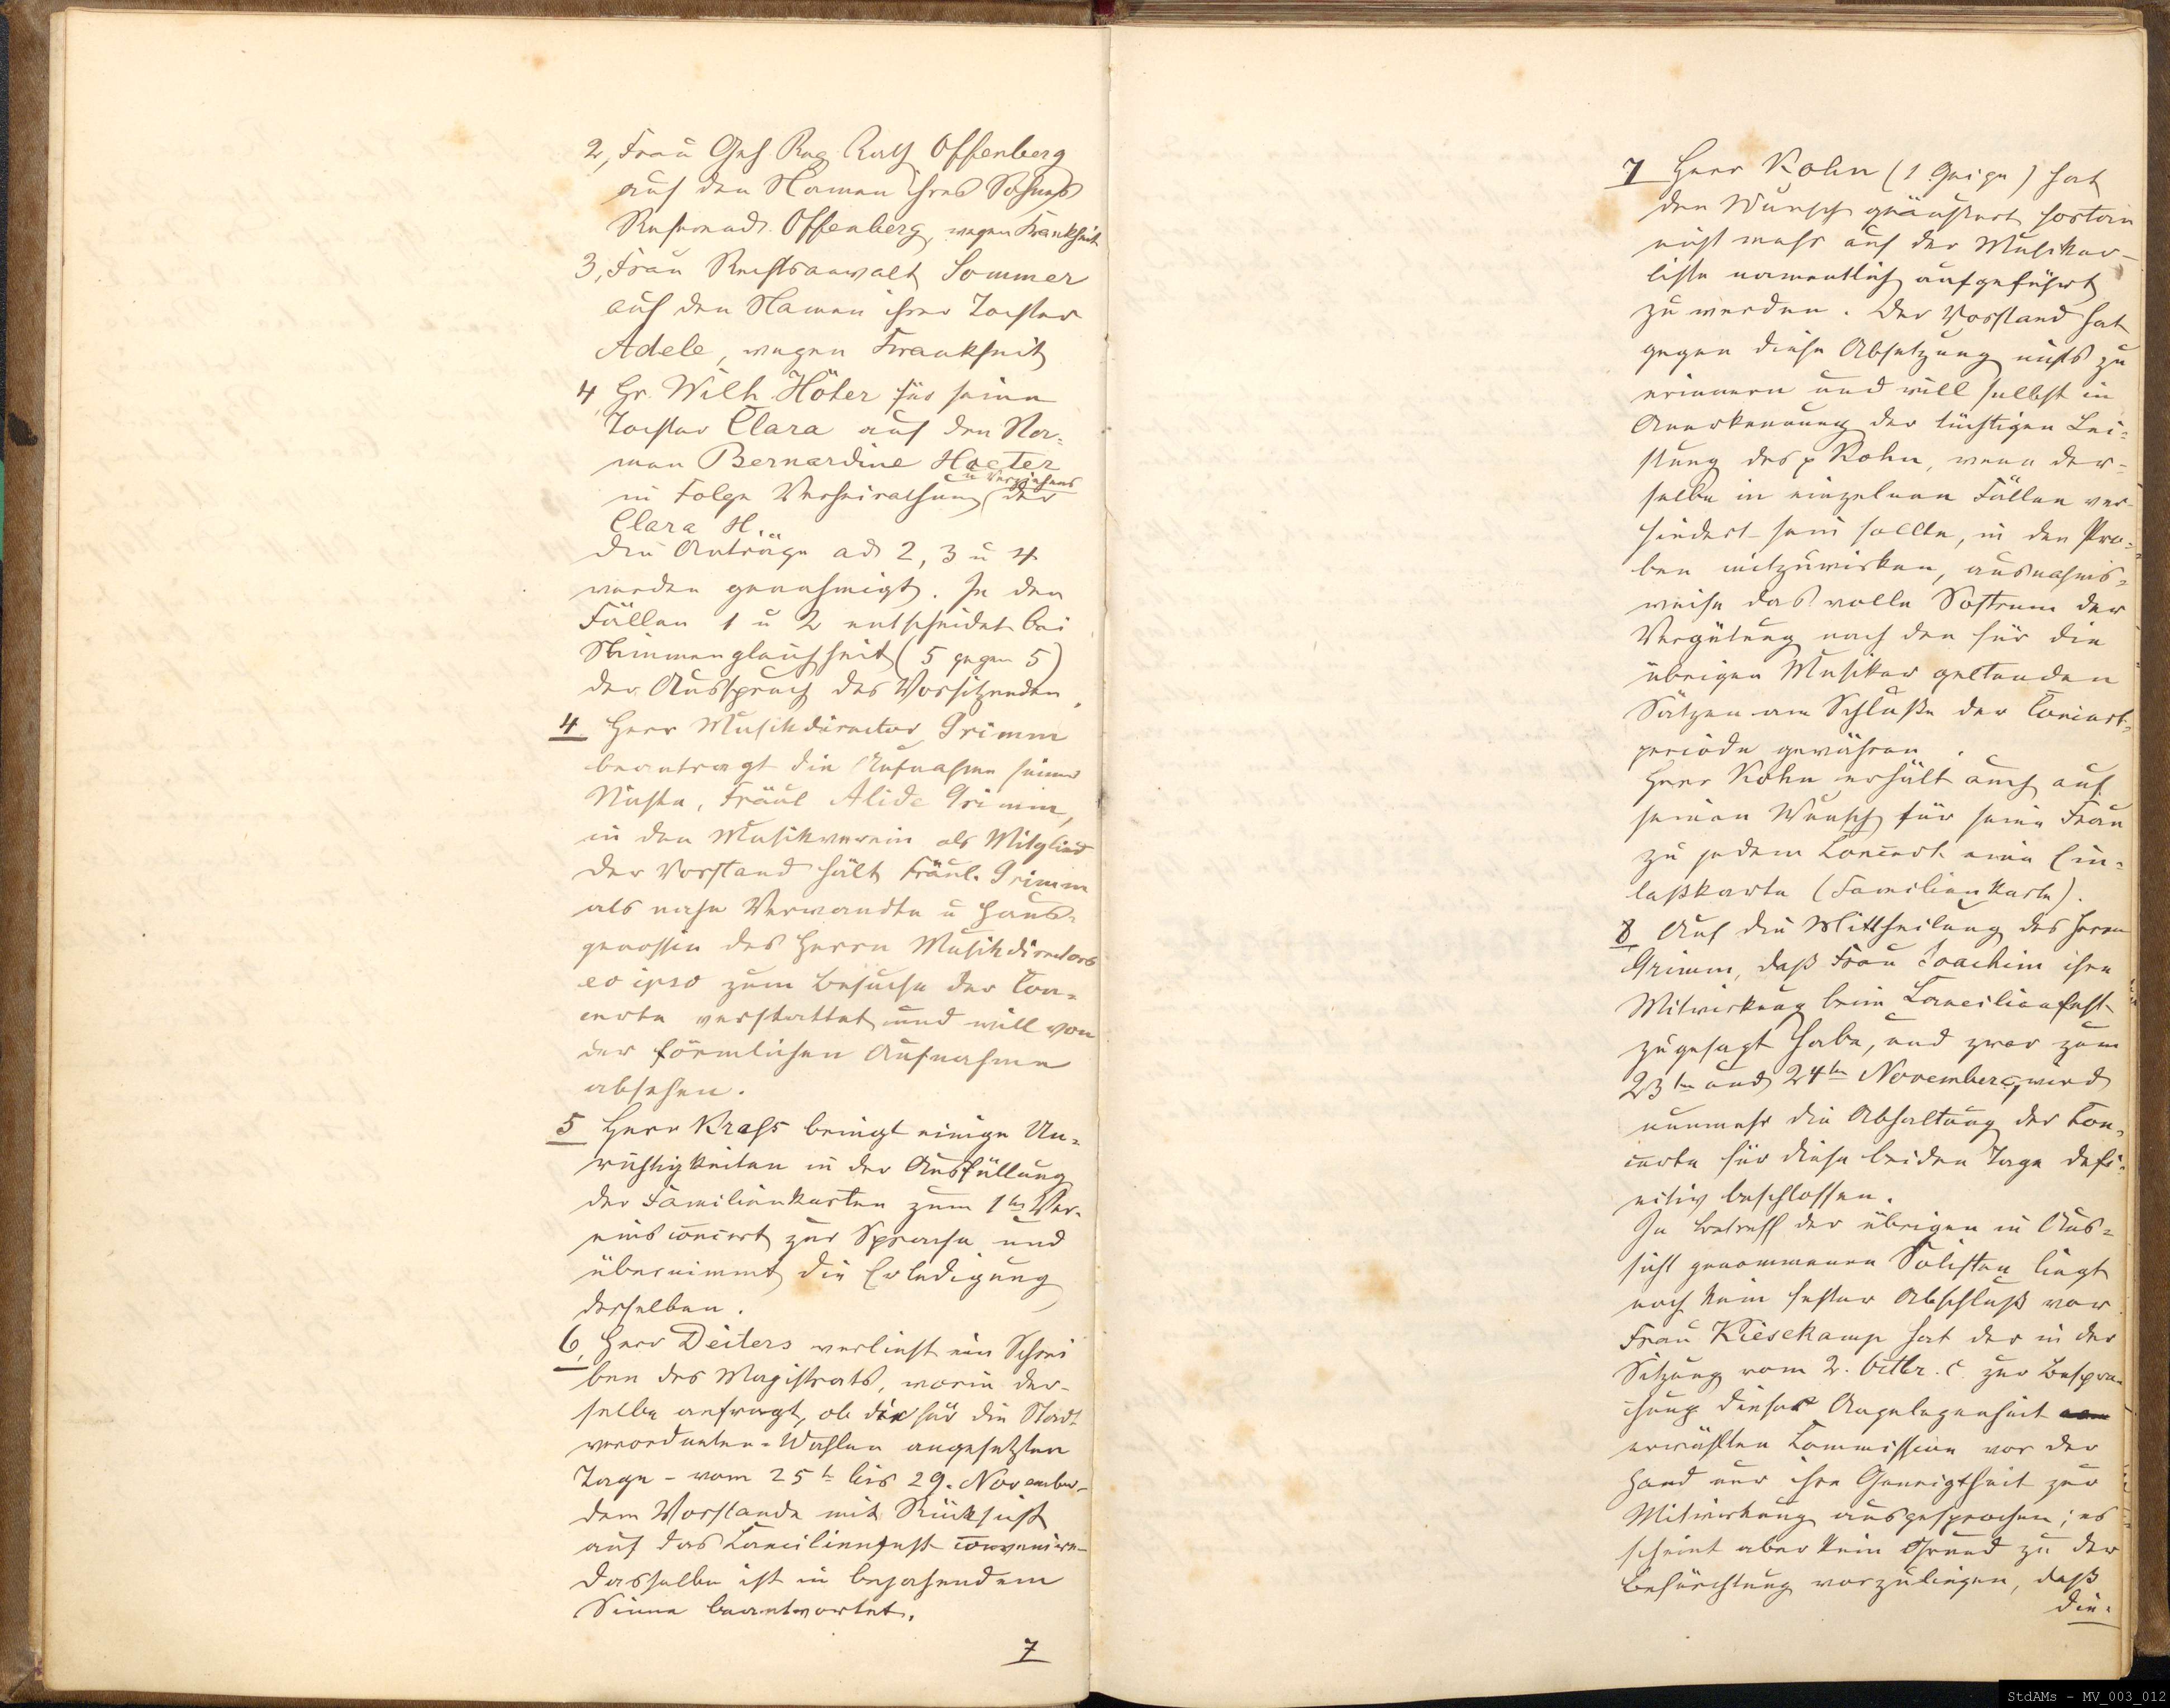 2, Frau Geh. Reg. Rath Offenberg
auf den Namen ihres Sohnes
Referend. Offenberg, wegen Krankheit
3, Frau Rechtsanwalt Sommer
auf den Namen ihrer Tochter
Adele, wegen Krankheit
4, Hr. Wilh. Höter für seine
Tochter Clara auf den Na-
men Bernardine Hoeter
u Verziehens
in Folge Verheirathung der
Clara H.
Die Anträge ad 2, 3 u 4
werden genehmigt. In den
Fällen 1 u 2 entscheidet bei
Stimmengleichheit (5 gegen 5)
der Ausspruch des Vorsitzenden.
4. Herr Musikdirector Grimm
beantragt die Aufnahme seiner
Nichte, Fräul Alide Grimm,
in den Musikverein als Mitglied
Der Vorstand hält Fräul. Grimm
als nahe Verwandte u Haus-
genossin des Herrn Musikdirectors
eo ipso zum Besuche der Con-
certe verstattet und will von
der förmlichen Aufnahme
absehen.
5 Herr Krass bringt einige Un-
richtigkeiten in der Ausfüllung
der Familienkarten zum 1ten Ver-
einsconcert zur Sprache und
übernimmt die Erledigung
derselben.
6, Herr Deiters verliest ein Schrei
ben des Magistrats, worin der-
selbe anfragt, ob die für die Stadt
verordneten-Wahlen angesetzten
Tage - vom 25t bis 29. November -
dem Vorstande mit Rücksicht
auf das Caecilienfest conveniren
Dasselbe ist in bejahendem
Sinne beantwortet.
7
7 Herr Kohn (1 Geige) hat
den Wunsch geäußert fortan
nicht mehr auf der Musiker-
liste namentlich aufgeführt
zu werden. Der Vorstand hat
gegen diese Absetzung nichts zu
erinnern und will selbst in
Anerkennung der tüchtigen Lei-
stung des p Kohn, wenn der-
selbe in einzelnen Fällen ver-
hindert sein sollte, in den Pro-
ben mitzuwirken, ausnahms-
weise das volle Sostrum der
Vergütung nach den für die
übrigen Musiker geltenden
Sätzen am Schluße der Concert-
periode gewähren.
Herr Kohn erhält auch auf
seinen Wunsch für seine Frau
zu jedem Concert eine Ein-
laßkarte (Familienkarte).
8 Auf die Mittheilung des Herrn
Grimm, daß Frau Joachim ihre
Mitwirkung beim Caecilienfest
zugesagt habe, und zwar zum
23ten und 24ten November c, wird
nunmehr die Abhaltung der Con-
certe für diese beiden Tage defi-
nitiv beschlossen.
In Betreff der übrigen in Aus-
sicht genommenen Solisten liegt
noch kein fester Abschluß vor
Frau Kiesekamp hat der in der
Sitzung vom 2. Octbr. c. zur Bespre-
chung dieser Angelegenheit
erwählten Commission vor der
Hand nur ihre Geneigtheit zur
Mitwirkung ausgesprochen; es
scheint aber kein Grund zu der
Befürchtung vorzuliegen, daß
die-
StdAMs - MV_003_012